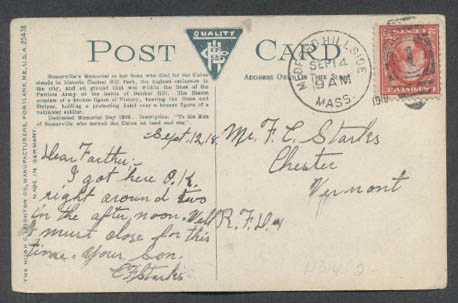 QUALITY
POST CARD
Somerville's Memorial to her Sons who died for the Union
stands in historic Central Hill Park, the highest eminence in
the city, and on ground that was within the lines of the
Patriots Army at the battle of Bunker Hill. The Statue
consists of a bronze figure of Victory, bearing the Stars and
Stripes, holding a protecting hand over a bronze figure of
a soldier.
Dedicated Memorial Day 1909. Inscription: "To the Men
of Somerville who served the Union on land and sea."
ADDRESS ON THIS SIDE
MEDFORD HILLSIDE
SEPT 14
9 AM
MASS.
THE HUGH C. LEIGHTON CO., MANUFACTURERS, PORTLAND, ME., U.S.A. 25478
MADE IN GERMANY.
Sept. 12, 18
Dear Farther:
I got here O.K.
right around two
in the afternoon. Well
I must close for this
time. Your Son.
C F Starks
Mr. F. C. Starks
Chester
Vermont
R.F.D.
N314